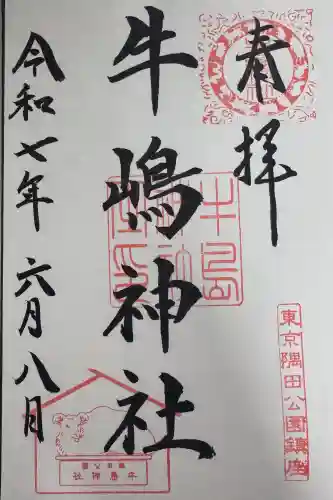 奉拝
東京隅田公園鎮座
牛嶋神社
牛嶋神社
令和七年 六月八日